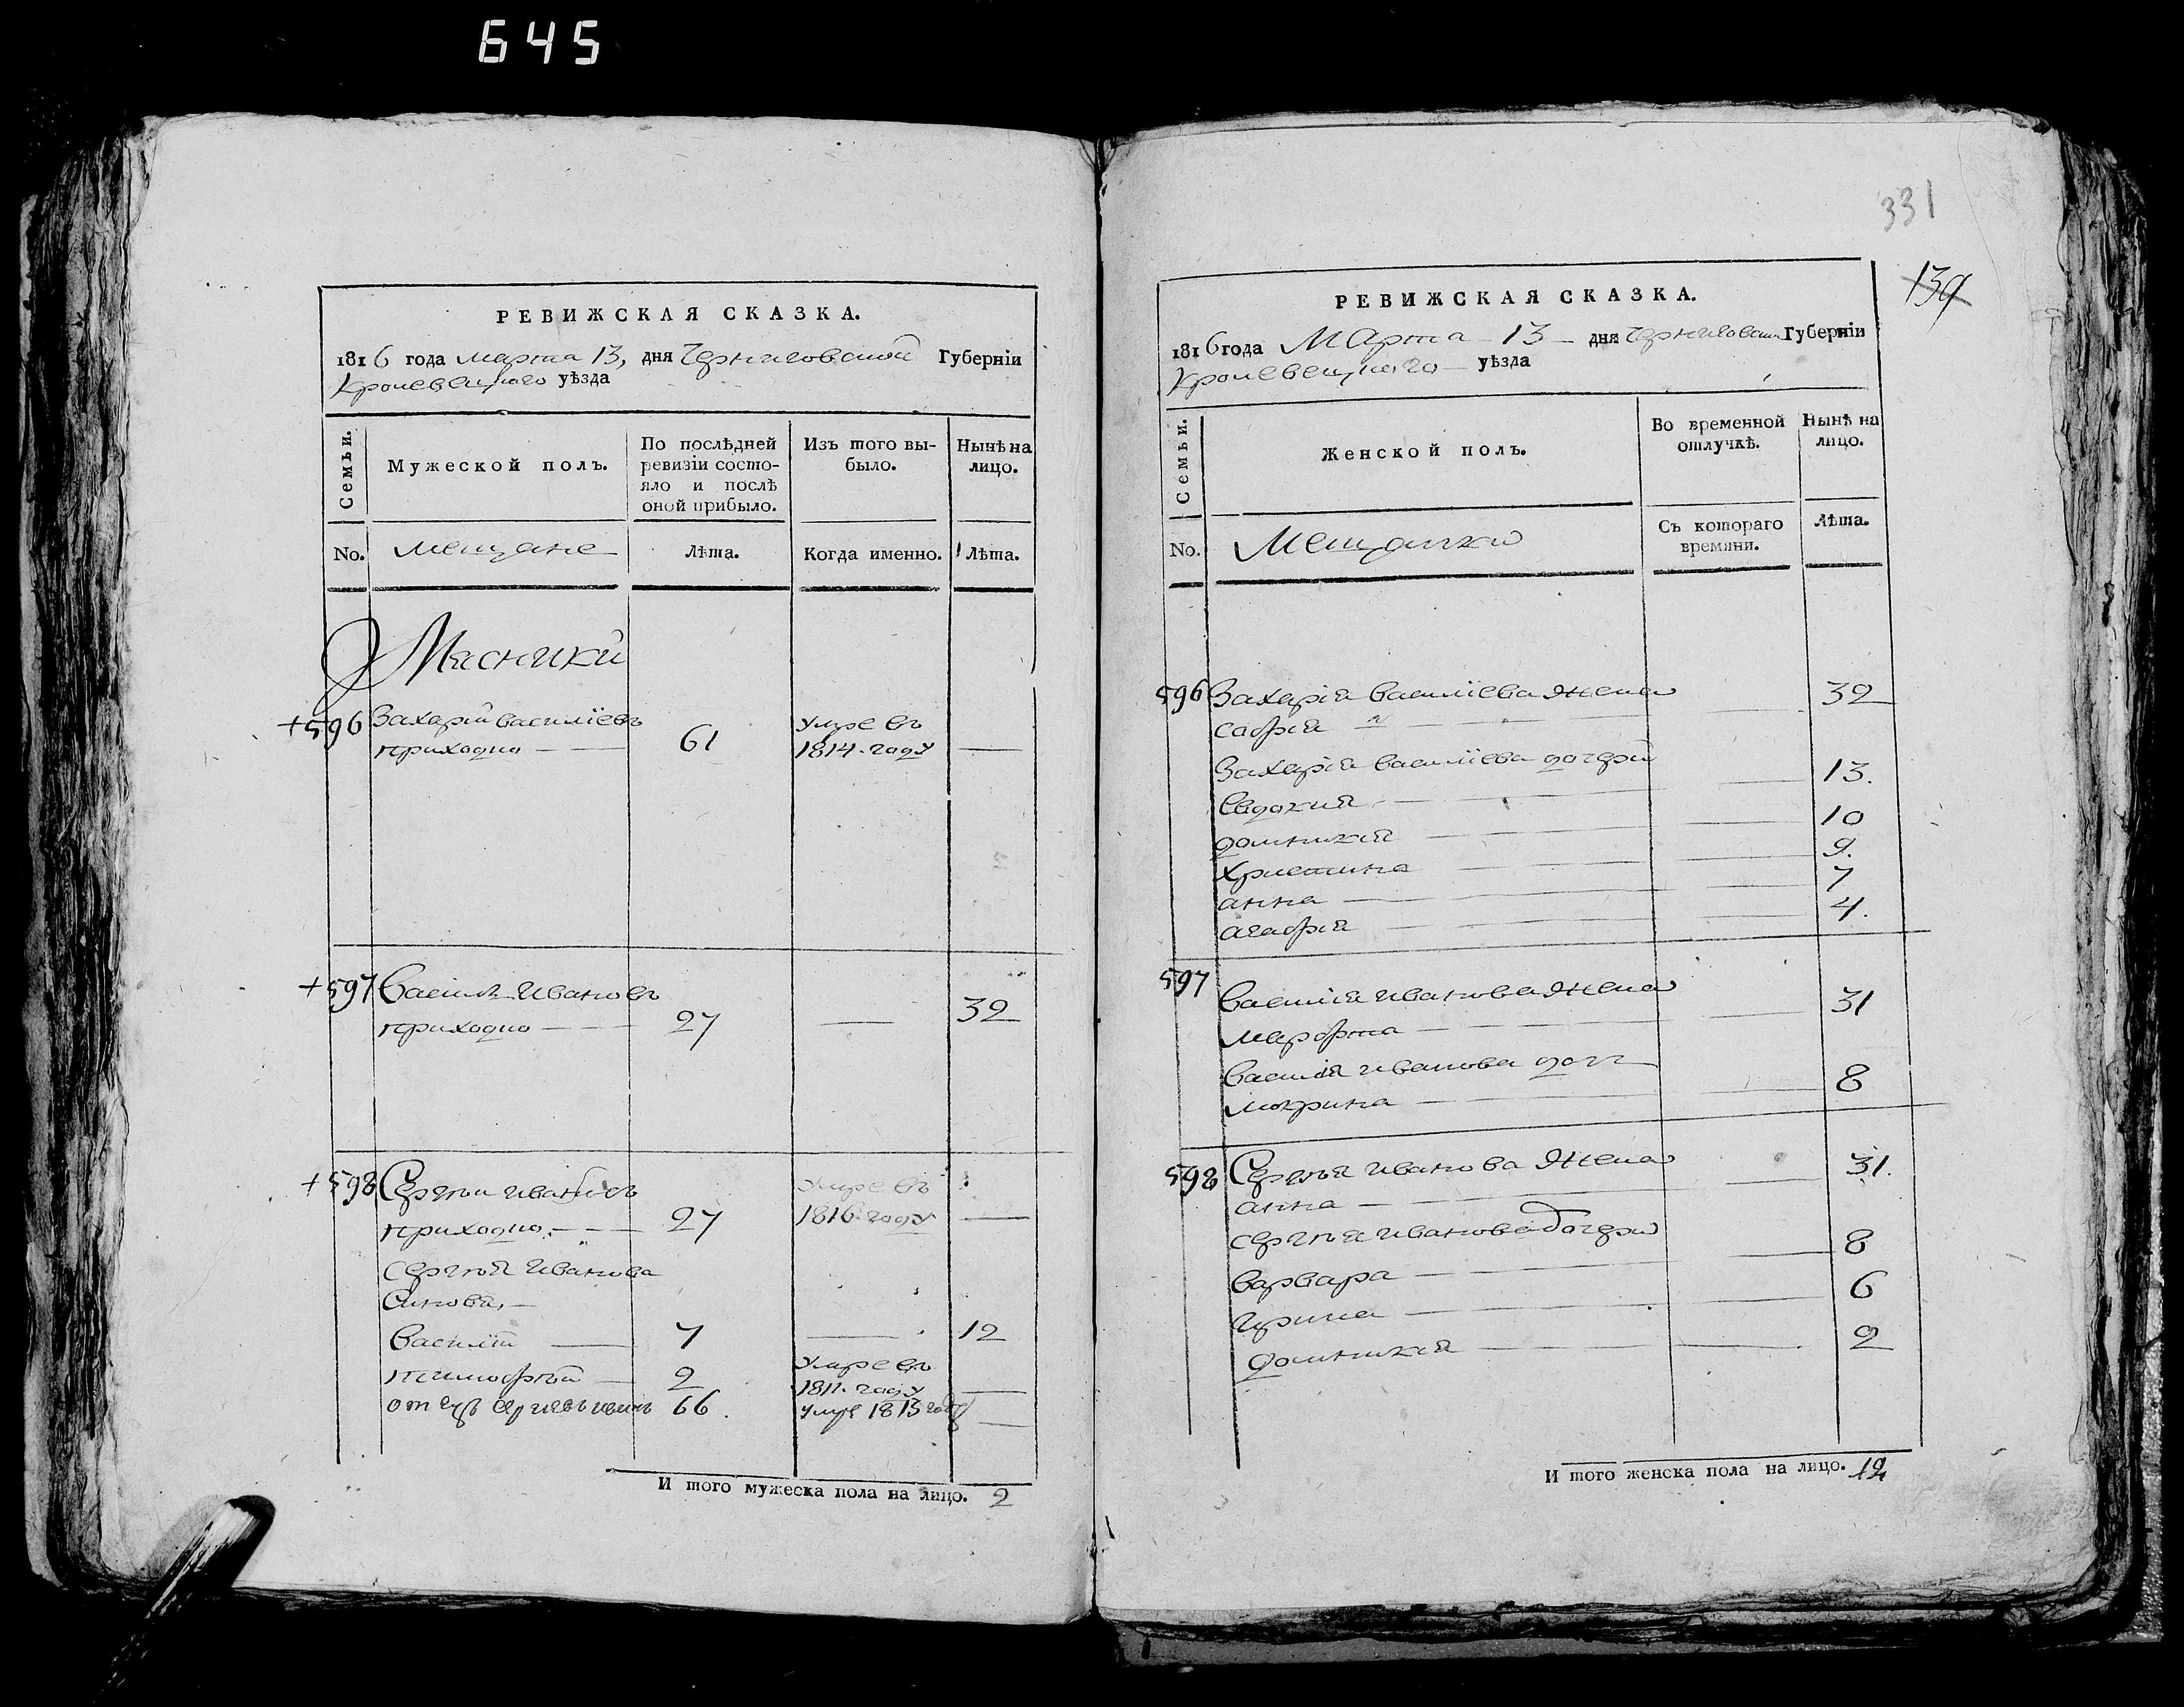 645
РЕВИЖСКАЯ СКАЗКА.
1816 года марта 13, дня Черниговской Губерніи
Кролевецкаго уѣзда
Семьи.
Мужеской полъ.
По послѣдней ревизіи состояло и послѣ оной прибыло.
Изъ того выбыло.
Нынѣ на лицо.
No.
мещане
Лѣта.
Когда именно.
Лѣта.
Мясники
+596 Захарий василіевъ
приходко 61
Умре въ
1814. году
+597 Василь Ивановъ
приходко 27 32
+598 Сергѣи ивановъ
приходко 27
Умре въ
1816. году
сергѣя Иванова
Синовя,
Василій 7 12
тимофѣй 2
Умре въ
1811. году
отецъ 66. умре 1813 году
И того мужеска пола на лицо. 2
331
139
РЕВИЖСКАЯ СКАЗКА.
1816 года Марта 13 дня Черниговской Губерніи
Кролевецкаго уѣзда
Семьи.
Женской полъ.
Во временной отлучкѣ.
Нынѣ на лицо.
No.
Мещанки
Съ котораго времяни.
Лѣта.
596 Захарія василіева жена
софія 32
Захарія василіева дочери
Евдокия 13.
домникия 10
Христина 9.
анна 7
агафія 4.
597 Василія иванова жена
марфта 31
василія иванова дочь
мокрина 8
598 Сергѣя иванова жена
анна 31.
сергѣя иванова дочери
варвара 8
ирина 6
домникия 2
И того женска пола на лицо. 12